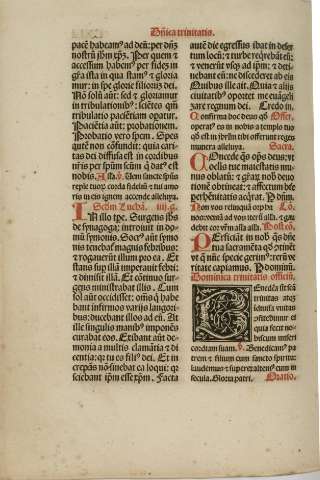 Dñica trinitatis.
pacē habemus ad deū: per dñz
nostrū ihm xp̄z. Per quem &
accessum habemus per fidez in
grā ista in qua stamus & gloria
mur: in spe glorie filiorum dei.
Nō solū aūt: sed & gloriamur
in tribulationibus: sciētes qm̄
tribulatio pacientiam operatur.
Paciētia aūt: probationem.
Probatio vero spem. Spes
autē nōn cōfundit: quia cari
tas dei diffusa est in cordibus
nr̄is per spm̄ scūm q datus est
nobis. Alla. v̄. Veni sancte spūs
reple tuorum corda fidelū & tui amo
ris in eis ignem accende alleluya.
Secūm. Lucam. iiij. g.
IN illo tpe. Surgens ihs
de synagoga: introiuit in do
mū symonis. Socrus aūt symo
nis tenebat magnis febribus:
& rogauerūt illum pro ea. Et
stans sup illā imperauit febri:
& dimisit illā. Et cōtinuo sur
gens ministrabat illis. Cum
sol aūt occidisset: om̄s q̄ habe
bant infirmos varijs langori
bus: ducebant illos ad eū. At
ille singulis manus imponēs
curabat eos. Exibant aūt de
monia a multis clamātia & di
centia: q tu es filius dei. Et in
crepās nō sinebat ea loqui: q
sciebant ipm̄ esse xpm̄. Facta
autē die egressus ibat in deser
tum locū: & turbe reqrebāt eū:
& venerūt vsq ad ipm: & deti
nebant eū: ne discederet ab eis
Quibus ille ait. Quia & alijs
ciuitatibus oportet me euāgeli
zare regnum dei. Credo in.
Confirma hoc deus qd Offer.
operatus es in nobis a templo tuo
qd est in hrlm tibi offerunt reges
munera alleluya. Secra.
COncede qs ops deus: vt
oculis tue maiestatis mu
nus oblatū: & grāz nob deuo
tionē obtineat: & affectum be
perhēnitatis acqrat. P dn̄m.
Non vos relinquā orpha Co.
nos: veniā ad vos iterū alla. & gau
debit cor vr̄m alla. Postcō.
PErficiāt in nob qs dn̄e
tua sacramēta qd cōtinēt
vt q nūc specie gerimus: rerū ve
ritate capiamus. P dominū.
Dominica trinitatis officiū.
BEnedcā sit scā
trinitas atq
indiuisa vnitas
cōfitebimur ei
quia fecit no
biscum miseri
cordiam suam. v̄. Benedicamus pa
trem & filium cum sancto spiritu:
laudemus & superexaltemus eum in
secula. Gloria patri. Oratio.